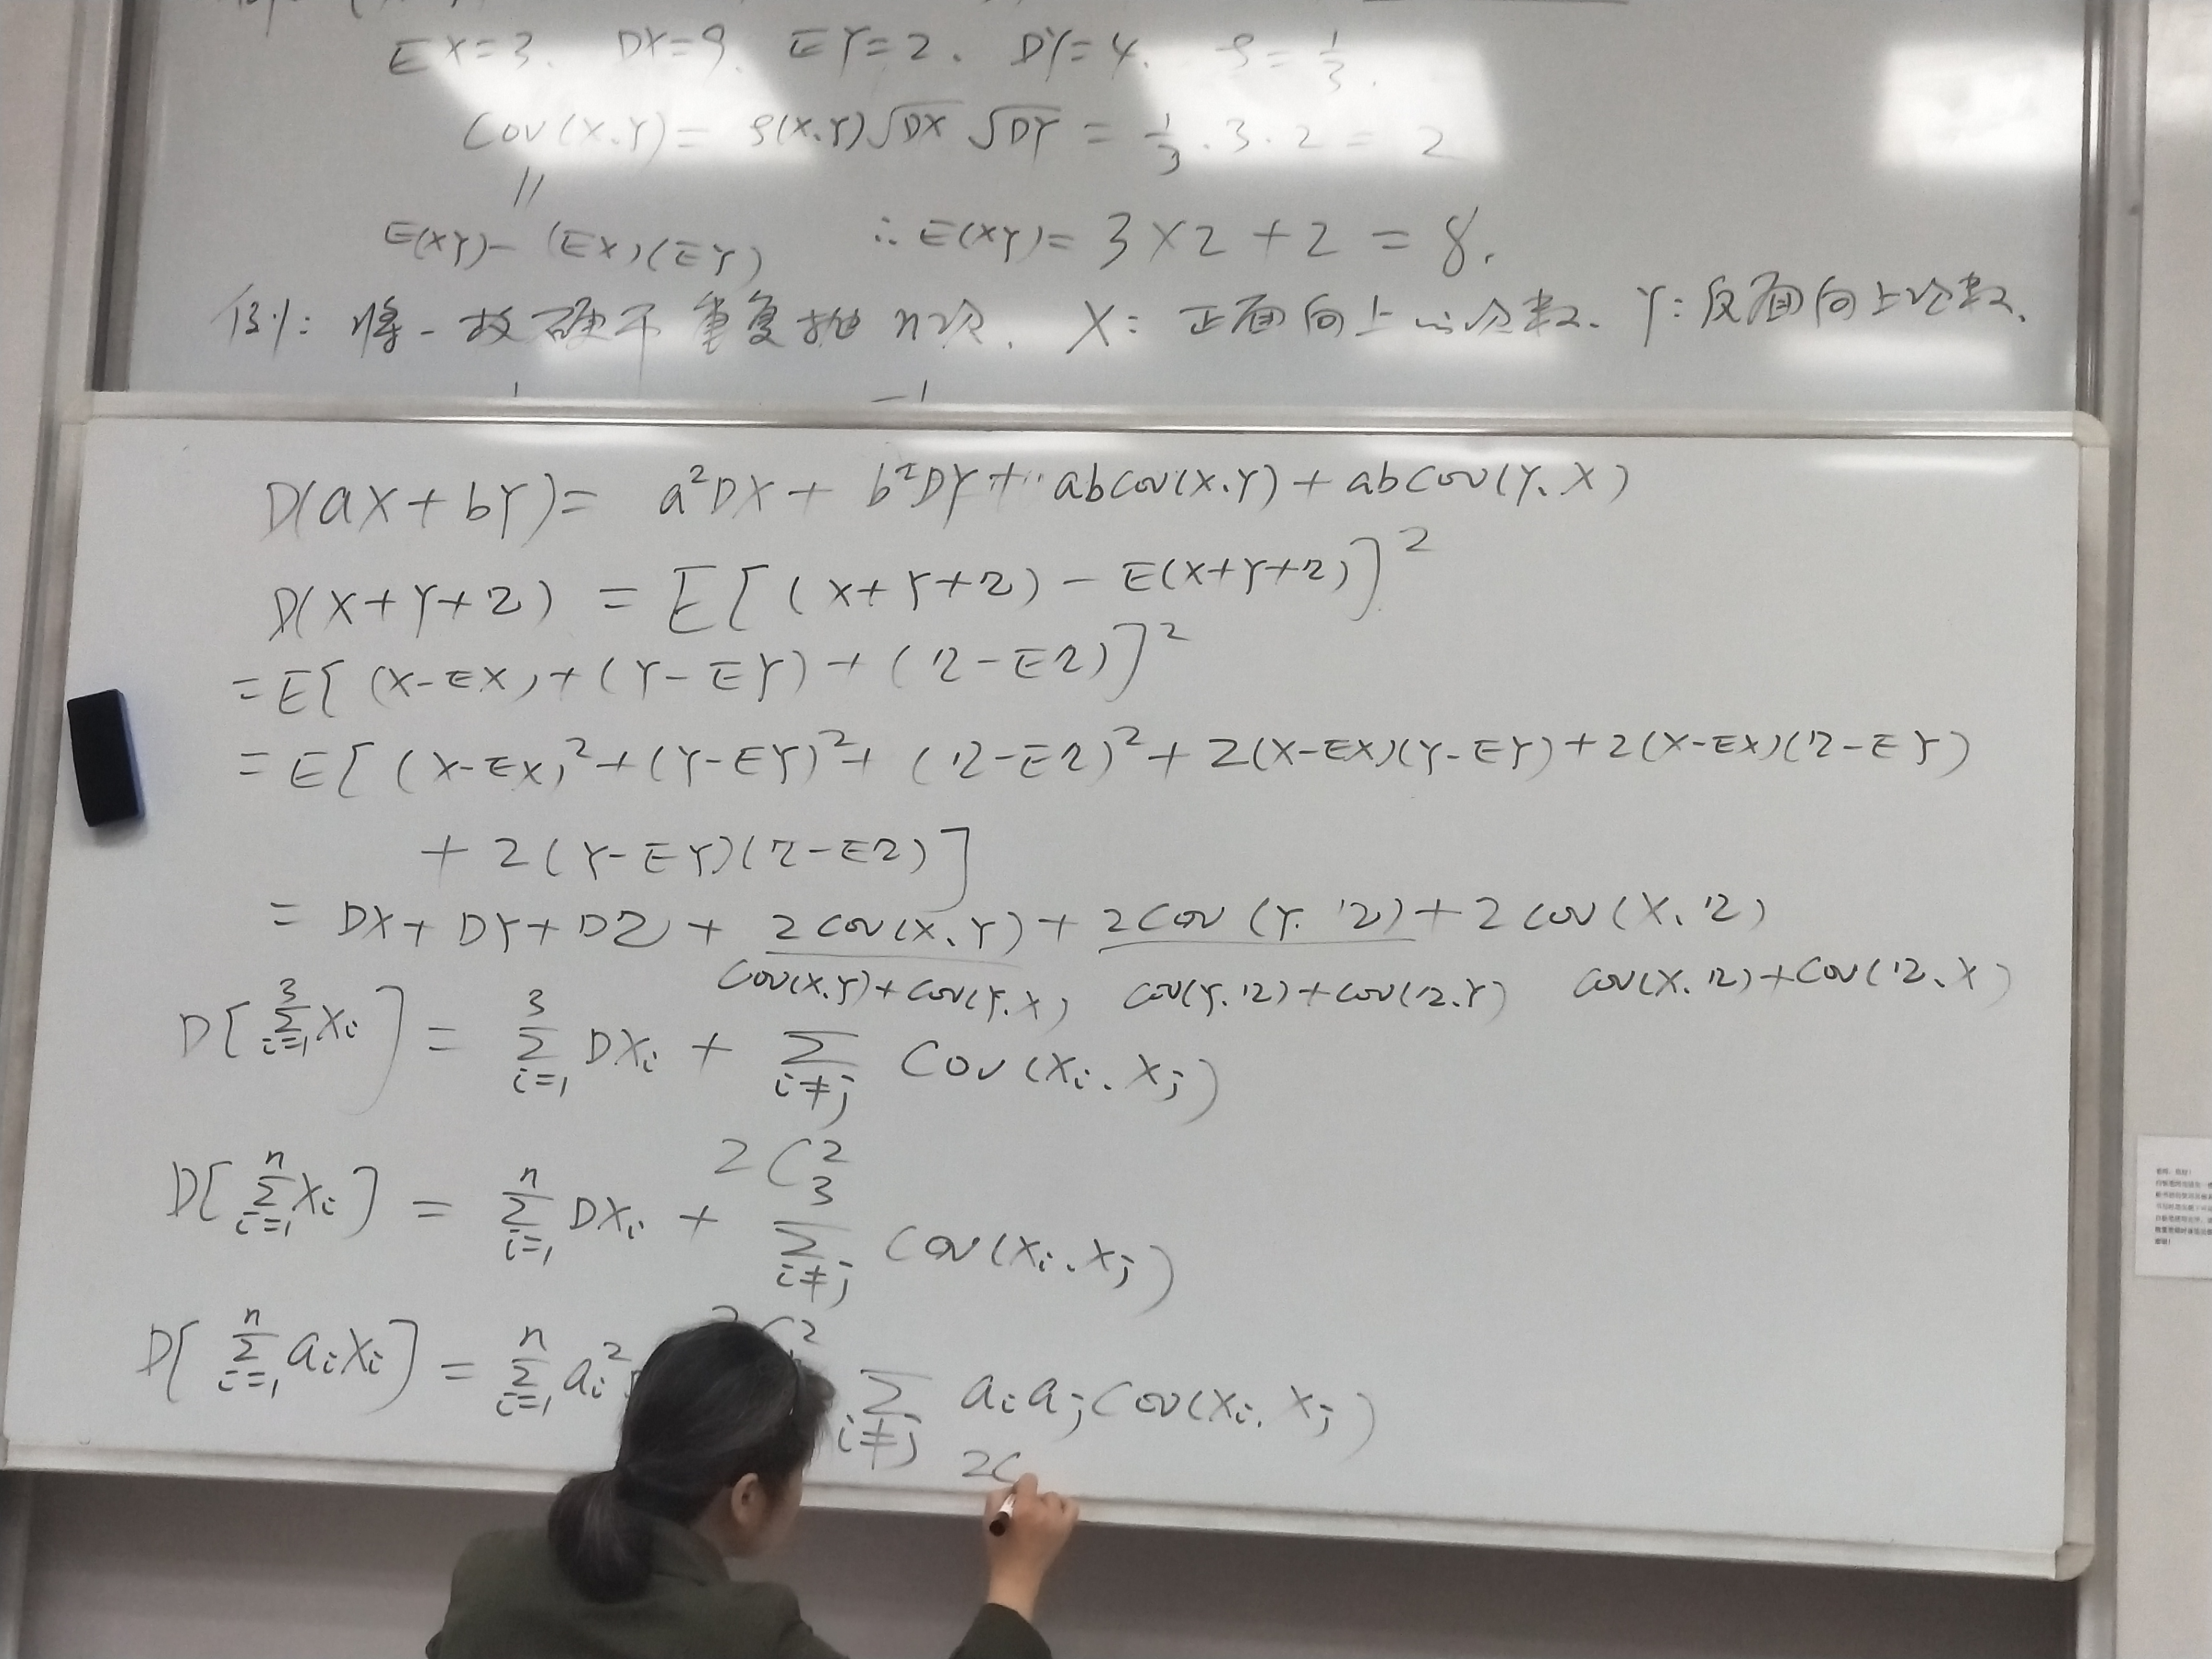 EX=3. DX=9. EY=2. DY=4. ρ=1/3.
Cov(X.Y)= ρ(X.Y)√DX √DY = 1/3 . 3 . 2 = 2
||
E(XY)- (EX)(EY) ∴ E(XY)= 3×2+2 = 8.
例: 将一枚硬币重复抛n次. X: 正面向上的次数. Y: 反面向上次数.
D(aX+bY)= a²DX + b²DY + abCov(X.Y) + abCov(Y.X)
D(X+Y+Z) = E[(X+Y+Z) - E(X+Y+Z)]²
=E[(X-EX)+(Y-EY)+(Z-EZ)]²
=E[(X-EX)²+(Y-EY)²+(Z-EZ)²+2(X-EX)(Y-EY)+2(X-EX)(Z-EY)
+2(Y-EY)(Z-EZ)]
= DX+DY+DZ + 2Cov(X.Y) + 2Cov(Y.Z) + 2Cov(X.Z)
Cov(X.Y)+Cov(Y.X) Cov(Y.Z)+Cov(Z.Y) Cov(X.Z)+Cov(Z.X)
D[∑_{i=1}^{3} Xi] = ∑_{i=1}^{3} DXi + ∑_{i≠j} Cov(Xi.Xj)
2C_3^2
D[∑_{i=1}^{n} Xi] = ∑_{i=1}^{n} DXi + ∑_{i≠j} Cov(Xi.Xj)
D[∑_{i=1}^{n} aiXi] = ∑_{i=1}^{n} ai² ∑_{i≠j} aiajCov(Xi.Xj)
2C